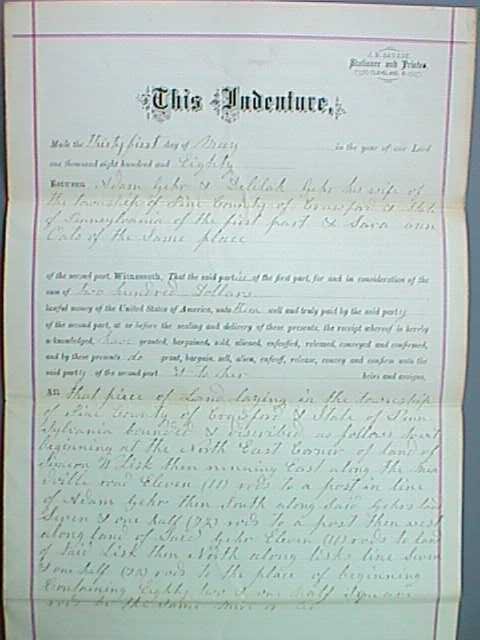 J. B. SAVAGE
Stationer and Printer,
CLEVELAND, O.
This Indenture,
Made the Thirty first day of May in the year of our Lord
one thousand eight hundred and Eighty
Between Adam Gehr & Delilah Gehr his wife of
the township of Pine County of & State
of Pennsylvania of the first part & Sara ann
of the Same place
of the second part, Witnesseth, That the said parties of the first part, for and in consideration of the
sum of two hundred Dollars
lawful money of the United States of America, unto them well and truly paid by the said party
of the second part, at or before the sealing and delivery of these presents, the receipt whereof is hereby
acknowledged, have granted, bargained, sold, aliened, enfeoffed, released, conveyed and confirmed,
and by these presents do grant, bargain, sell, alien, enfeoff, release, convey and confirm unto the
said party of the second part & to her heirs and assigns,
All that piece of Land laying in the township
of Pine County of & State of Penn
Sylvania bounded & discribed as follows
beginning at the North East Corner of land of
Simeon N Lisk then running East along the Mea
dville road Eleven (11) rods to a post in line
of Adam Gehr then South along Said Gehrs land
Seven & one half (7½) rods to a post then west
along land of Said Gehr Eleven (11) rods to land
of Said Lisk then North along lisks line Seven
& one half (7½) rods to the place of beginning
Containing Eighty two & one half Square
rods be the Same more or